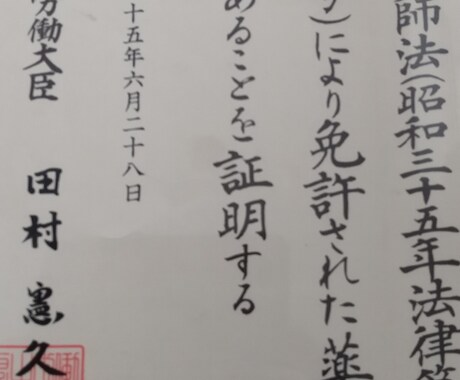 師法(昭和三十五年法律第
)により免許された薬
あることを証明する
十五年六月二十八日
労働大臣 田村憲久